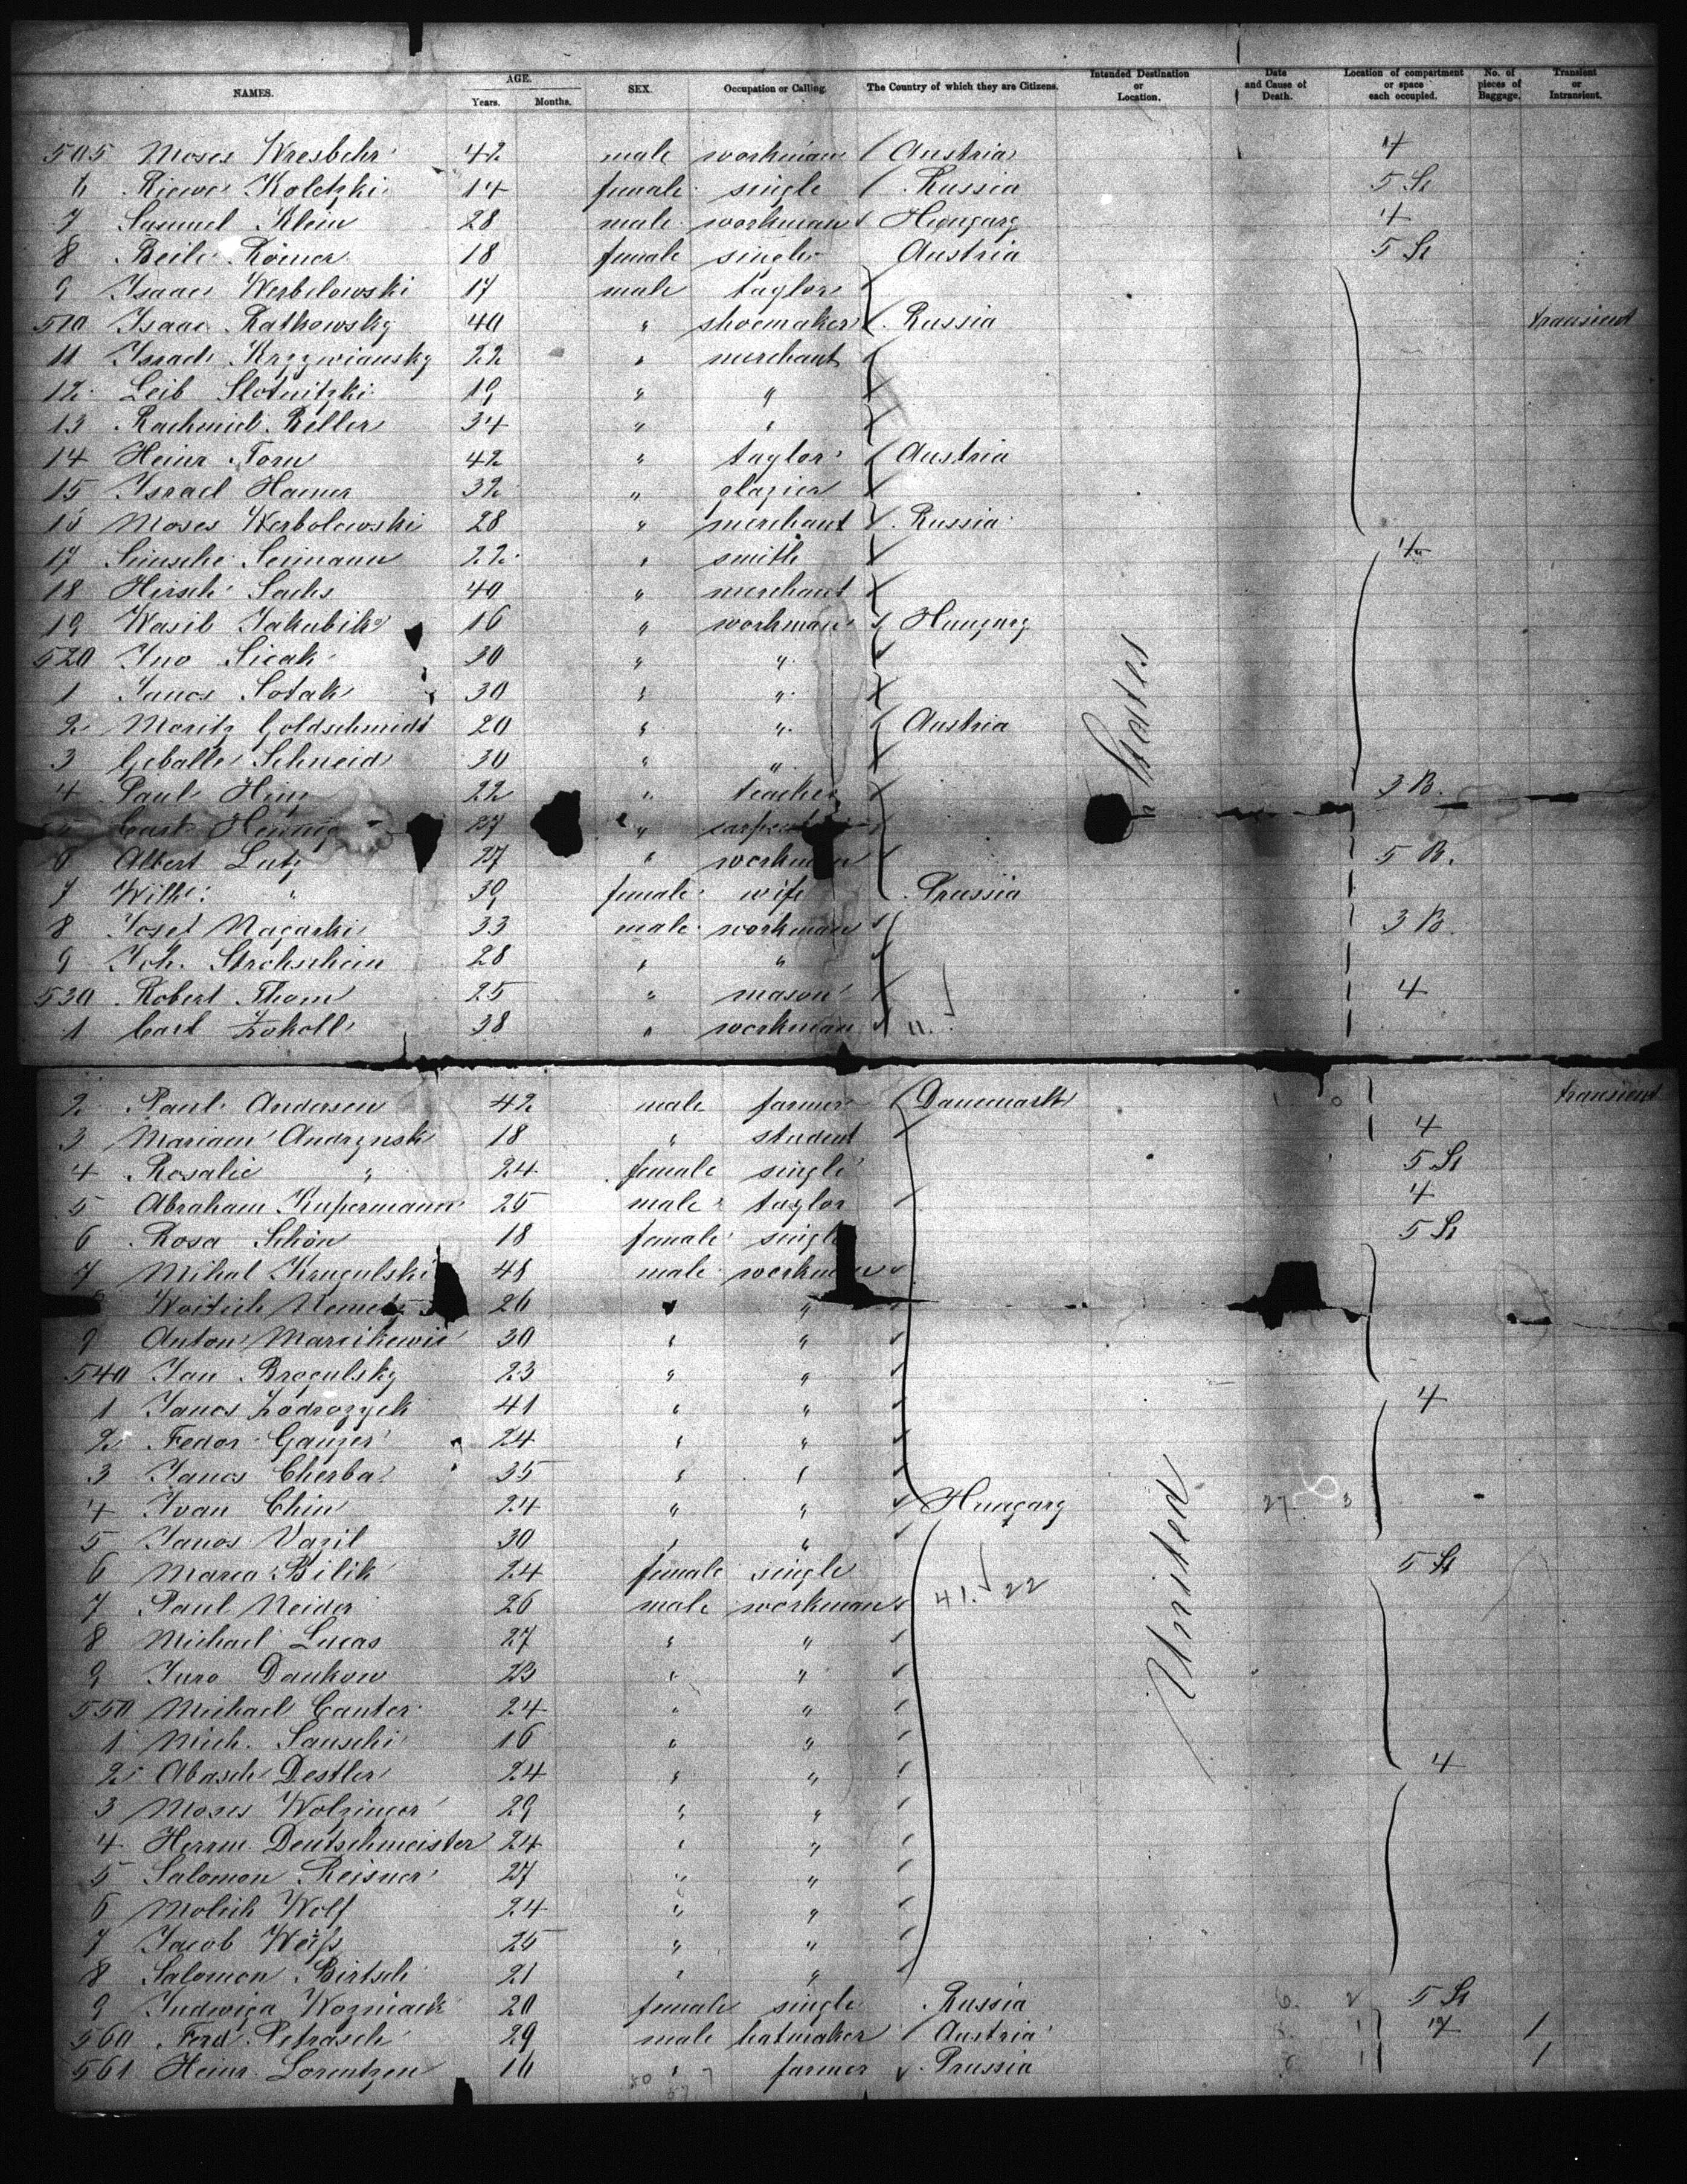 NAMES. AGE. Years. Months. SEX. Occupation or Calling. The Country of which they are Citizens. Intended Destination or Location. Date and Cause of Death. Location of compartment or space each occupied. No. of pieces of Baggage. Transient or Intransient.
505 Moses Wresbehr 42 male workman Austria 4
6 Riewe Koletzki 14 female single Russia 5 St
7 Samuel Klein 28 male workman Hungary 4
8 Beile Römer 18 female single Austria 5 St
9 Isaac Werbelowski 17 male taylor
510 Isaac Rathowsky 40 " shoemaker Russia transient
11 Israel Krzywiansky 22 " merchant
12 Leib Slotnitzki 19 " "
13 Rachmiel Beller 34 " "
14 Heinr Torn 42 " taylor Austria
15 Israel Hamer 32 " glazier
16 Moses Werbolowski 28 " merchant Russia
17 Simsche Seimann 22 " smith 4
18 Hirsch Sachs 40 " merchant
19 Wasil Jakubik 16 " workman Hungary
520 Ino Sicak 30 " "
1 Janos Sotak 30 " "
2 Moritz Goldschmidt 20 " " Austria
3 Geballe Schneid 30 " "
4 Paul Hinz 22 " teacher 3 B.
5 Carl Hennig 27 "
6 Albert Lutz 27 " workman 5 B.
7 Wilh: " 39 female wife Prussia
8 Josef Nagarski 33 male workman 3 B.
9 Joh. Strohschein 28 " "
530 Robert Thom 25 " mason 4
1 Carl Zokoll 38 " workman 11.
States
2 Paul Andersen 42 male farmer Danemark transient
3 Mariam Andrzynsk 18 " student 4
4 Rosalie " 24 female single 5 St
5 Abraham Kupermann 25 male taylor 4
6 Rosa Schön 18 female single 5 St
7 Mihal Krugulski 48 male workman
Woitech Nemetz 26 " "
9 Anton Marcikewic 30 " "
540 Jan Brogulsky 23 " "
1 Janos Zadrozyck 41 " " 4
2 Fedor Ganzer 24 " "
3 Janos Cherba 35 " "
4 Ivan Chin 24 " " Hungary 27 3
5 Janos Vazil 30 " "
6 Marca Bilik 24 female single 5 St
7 Paul Neider 26 male workman 41. 22
8 Michael Lucas 27 " "
9 Juro Dankow 23 " "
550 Michael Canter 24 " "
1 Mich. Sauschi 16 " "
2 Abasch Destler 24 " " 4
3 Moses Wolzinger 29 " "
4 Herrm. Deutschmeister 24 " "
5 Salomon Reisner 27 " "
6 Molich Wolf 24 " "
7 Jacob Weiß 25 " "
8 Salomon Birtsch 21 " "
United
9 Judwiga Wozniack 20 female single Russia 6. 2 5 St
560 Ferd Petrasch 29 male hatmaker Austria 1 1
561 Heinr. Lorentzen 16 " farmer Prussia 1 1